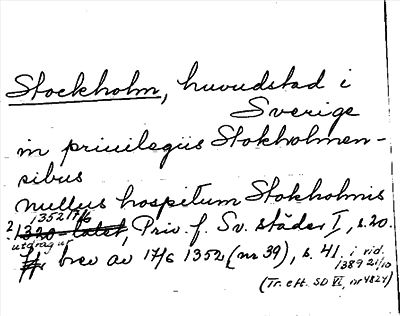 Stockholm, huvudstad i
Sverige
in priuilegiis Stokholmen-
sibus
nullus hospitum Stokholmis
1352 17/6
2. 1320-talet, Priv. f. Sv. städer I, s. 20.
utdrag ur
brev av 17/6 1352 (nr 39), s. 41. i vid.
1389 21/10
(Tr. eft. SD VI, nr 4824)